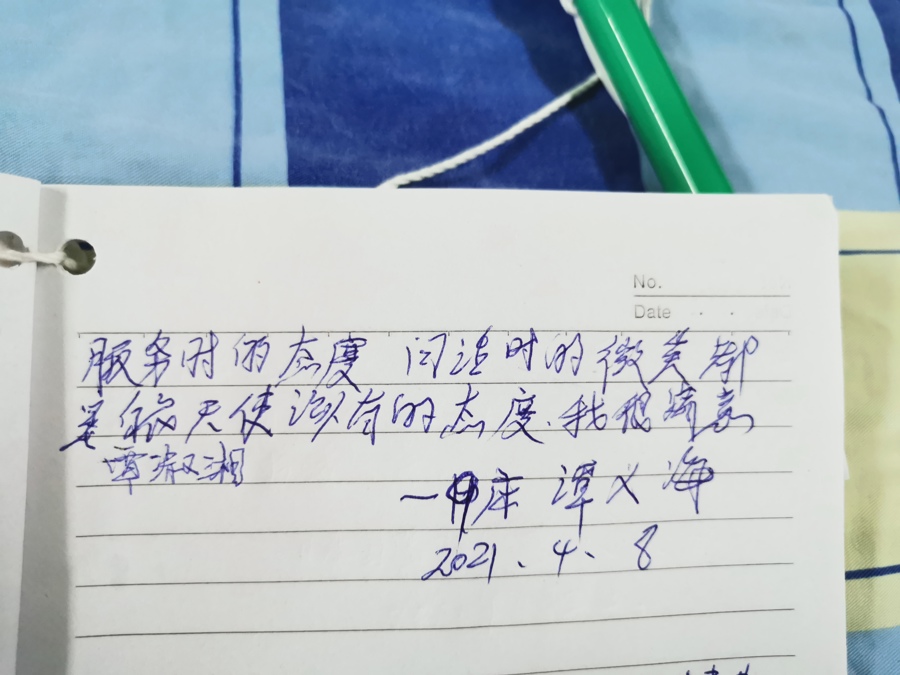 No.
Date
服务时的态度 问洽时的微笑都
是白衣天使该有的态度.我很满意
覃淑湘
一甲床 谭义海
2021.4.8